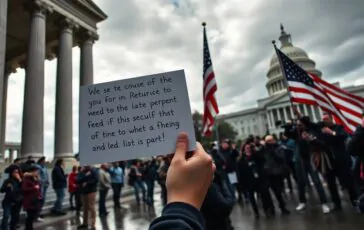 We se te couse of the
you for in Returice to
weed to the late perpent
feed if this seculf that
of tine to whet a fheing
and led list is part!